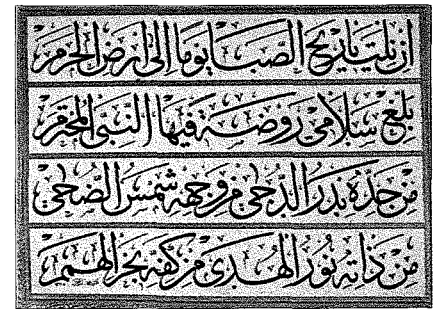 ان نلت ياريح الصبا يوما الى ارض الحرم
بلغ سلامى روضة فيها النبى المحترم
من خده بدر الدجى من وجهه شمس الضحى
من ذاته نور الهدى من كفه بحر الهمم